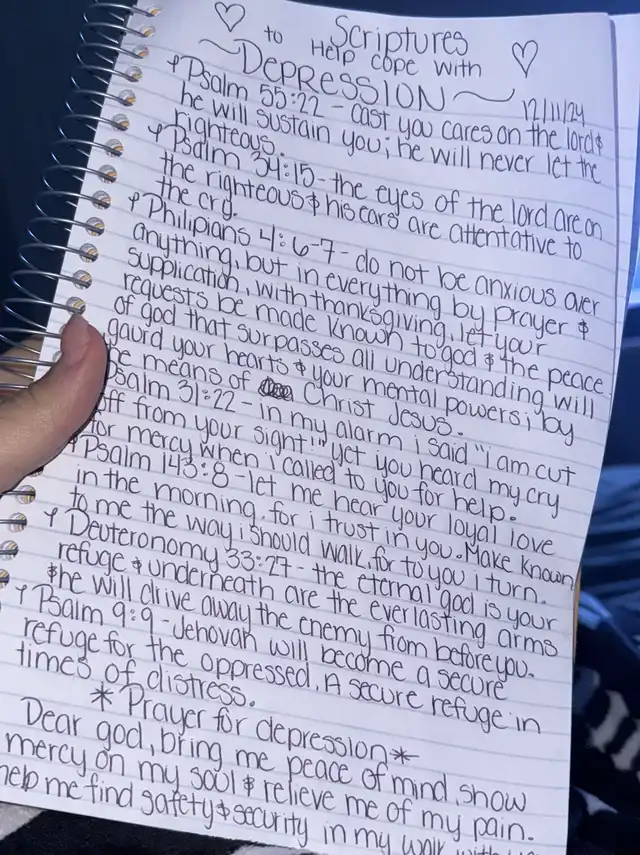 Scriptures
to Help cope with
DEPRESSION
12/11/24
Psalm 55:22 - cast you cares on the lord &
he will sustain you; he will never let the
righteous.
Psalm 34:15 - the eyes of the lord are on
the righteous & his ears are attentative to
the cry.
Philipians 4:6-7 - do not be anxious over
anything, but in everything by prayer &
supplication, with thanksgiving, let your
requests be made known to god & the peace
of god that surpasses all understanding will
gaurd your hearts & your mental powers; by
means of Christ Jesus.
Psalm 31:22 - in my alarm i said "i am cut
off from your sight!" yet you heard my cry
for mercy when i called to you for help.
Psalm 143:8 - let me hear your loyal love
in the morning, for i trust in you. Make known
to me the way i should walk, for to you i turn.
Deuteronomy 33:27 - the eternal god is your
refuge & underneath are the everlasting arms
& he will drive away the enemy from before you.
Psalm 9:9 - Jehovah will become a secure
refuge for the oppressed. A secure refuge in
times of distress.
* Prayer for depression *
Dear god, bring me peace of mind, show
mercy on my soul & relieve me of my pain.
help me find safety & security in my walk with